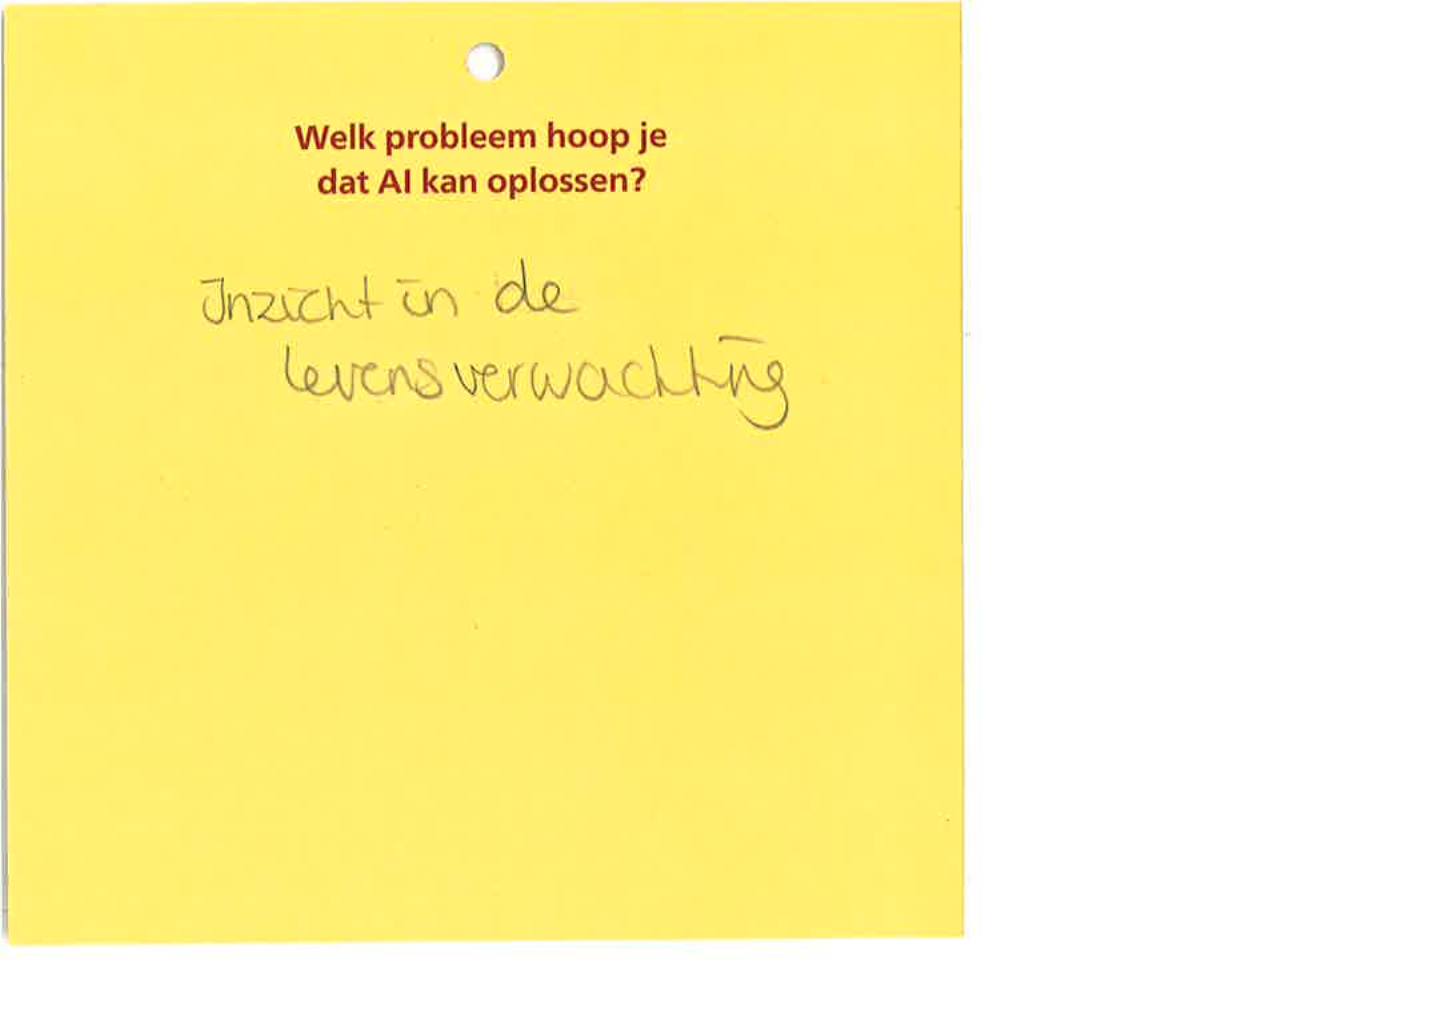 Welk probleem hoop je
dat AI kan oplossen?
Inzicht in de
levensverwachting